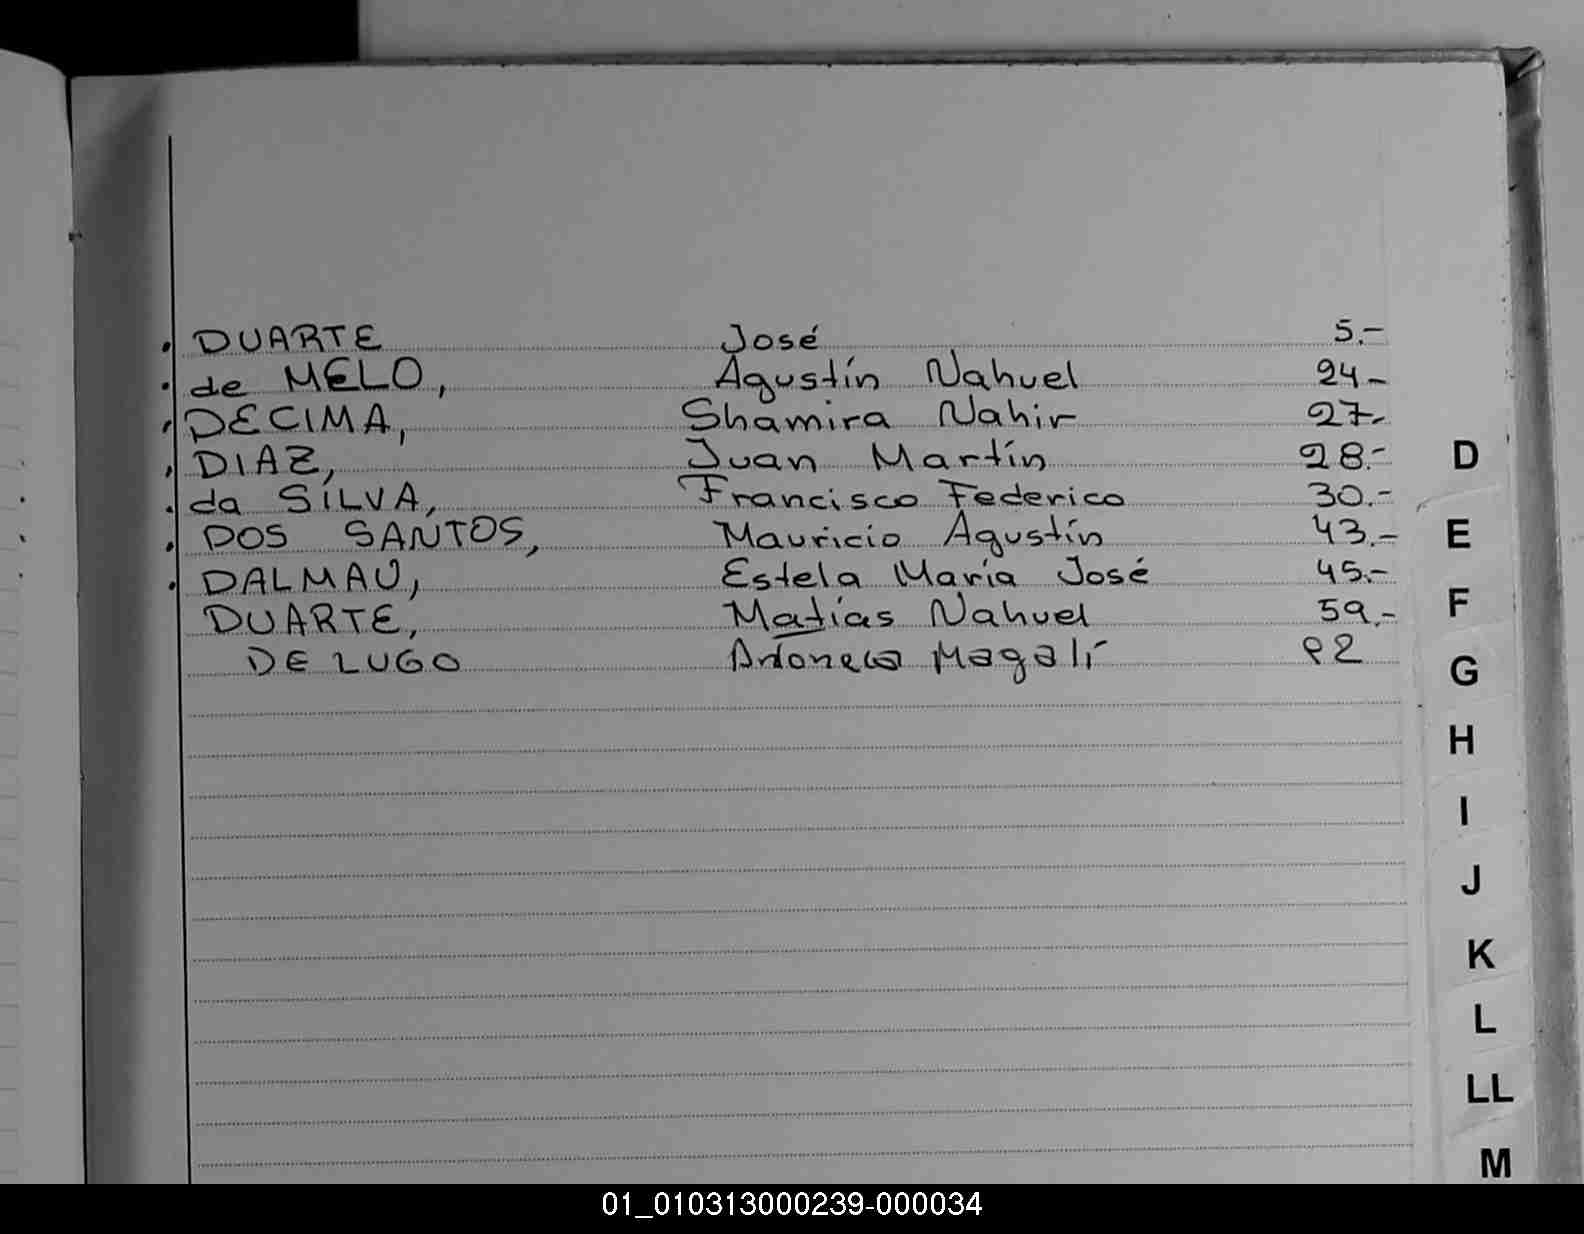 . DUARTE José 5.-
. de MELO, Agustín Nahuel 24-
. DECIMA, Shamira Nahir 27-
. DIAZ, Juan Martín 28.-
. da SILVA, Francisco Federico 30.-
. DOS SANTOS, Mauricio Agustín 43.-
. DALMAU, Estela María José 45.-
DUARTE, Matías Nahuel 59.-
DE LUGO Magalí
D
E
F
G
H
I
J
K
L
LL
M
01_010313000239-000034